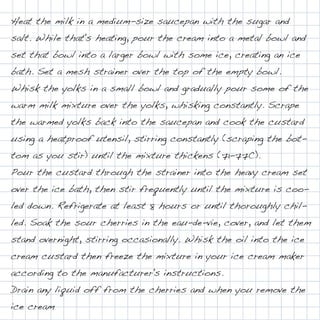 Heat the milk in a medium-size saucepan with the sugar and
salt. While that's heating, pour the cream into a metal bowl and
set that bowl into a larger bowl with some ice, creating an ice
bath. Set a mesh strainer over the top of the empty bowl.
Whisk the yolks in a small bowl and gradually pour some of the
warm milk mixture over the yolks, whisking constantly. Scrape
the warmed yolks back into the saucepan and cook the custard
using a heatproof utensil, stirring constantly (scraping the bot-
tom as you stir) until the mixture thickens (71-77C).
Pour the custard through the strainer into the heavy cream set
over the ice bath, then stir frequently until the mixture is coo-
led down. Refrigerate at least 8 hours or until thoroughly chil-
led. Soak the sour cherries in the eau-de-vie, cover, and let them
stand overnight, stirring occasionally. Whisk the oil into the ice
cream custard then freeze the mixture in your ice cream maker
according to the manufacturer's instructions.
Drain any liquid off from the cherries and when you remove the
ice cream